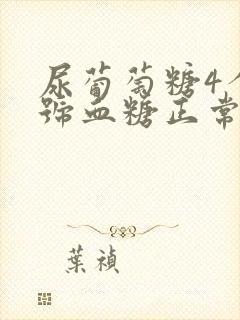 尿葡萄糖4个
號血糖正常
葉禎